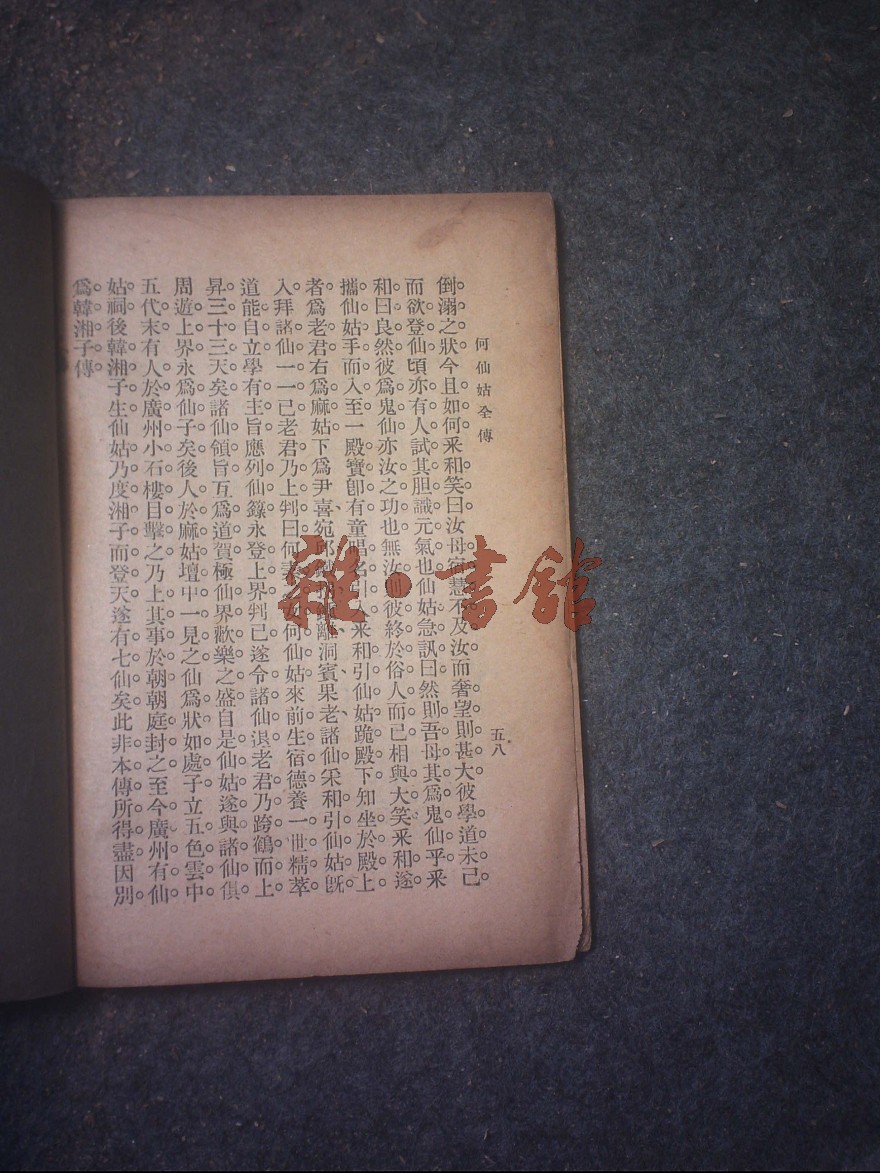 何仙姑全傳
五八
倒溺之狀今且如何釆和笑曰汝母宿慧不及汝而奢望則甚大彼學道未已
而欲登仙頃亦有人試其胆識元氣也仙姑急訊曰然則吾母其爲鬼仙乎釆
和曰良然彼爲鬼仙亦汝之功也無汝仙彼終於俗人而已相與大笑釆和遂
攜仙姑手而入至一殿寶卽有童唱名引入釆和引仙姑跪殿下知坐於殿上
者爲老君右爲麻姑下爲尹喜、宛邱、離、洞賓、果老、諸仙釆和引仙姑旣
入拜諸仙一一已老君乃上判曰何何仙姑來前生宿德養一世精萃
道能自立學有主旨應列仙籙永登上界判已遂令諸仙退老君乃跨鶴而上
昇三十三天矣諸仙領旨互爲道賀極仙界歡樂之盛自是仙姑遂與諸仙俱
周遊上界永爲仙子矣後人於麻姑壇中一見之仙爲狀如處子立五色雲中
五代末有人於廣州小石樓目擊之乃上其事於朝朝庭封之至今廣州有仙
姑祠後韓湘子生仙姑乃度湘子而登天遂有七仙矣此非本傳所得盡因別
爲韓湘子傳
雜·書館